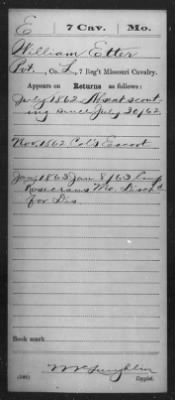 E 7 Cav. Mo.
William Etter
Pvt., Co. L, 7 Reg't Missouri Cavalry.
Appears on Returns as follows:
July 1862. Absent scout
ing since July 30/62.
Nov. 1862 Col's Escort
Jan. 1863 Jan. 8/63 Camp
Rosecrans Mo. Disch'd
for Dis.
Book mark:
Copyist.